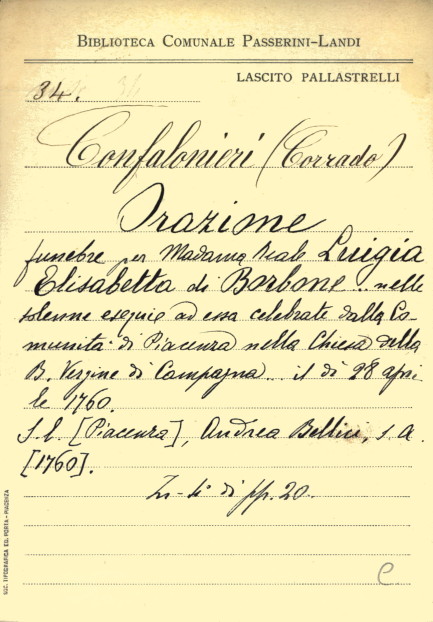 BIBLIOTECA COMUNALE PASSERINI-LANDI
LASCITO PALLASTRELLI
34.
Confalonieri (Corrado)
Orazione
funebre per Madama Reale Luigia
Elisabetta di Borbone... nelle
solenne esequie ad essa celebrate dalla Co-
munità di Piacenza nella Chiesa della
B. Vergine di Campagna... il dì 28 apri-
le 1760.
S. l. [Piacenza], Andrea Bellici, s. a.
[1760].
In-4° di pp. 20.
SOC. TIPOGRAFICA ED. PORTA - PIACENZA
C.